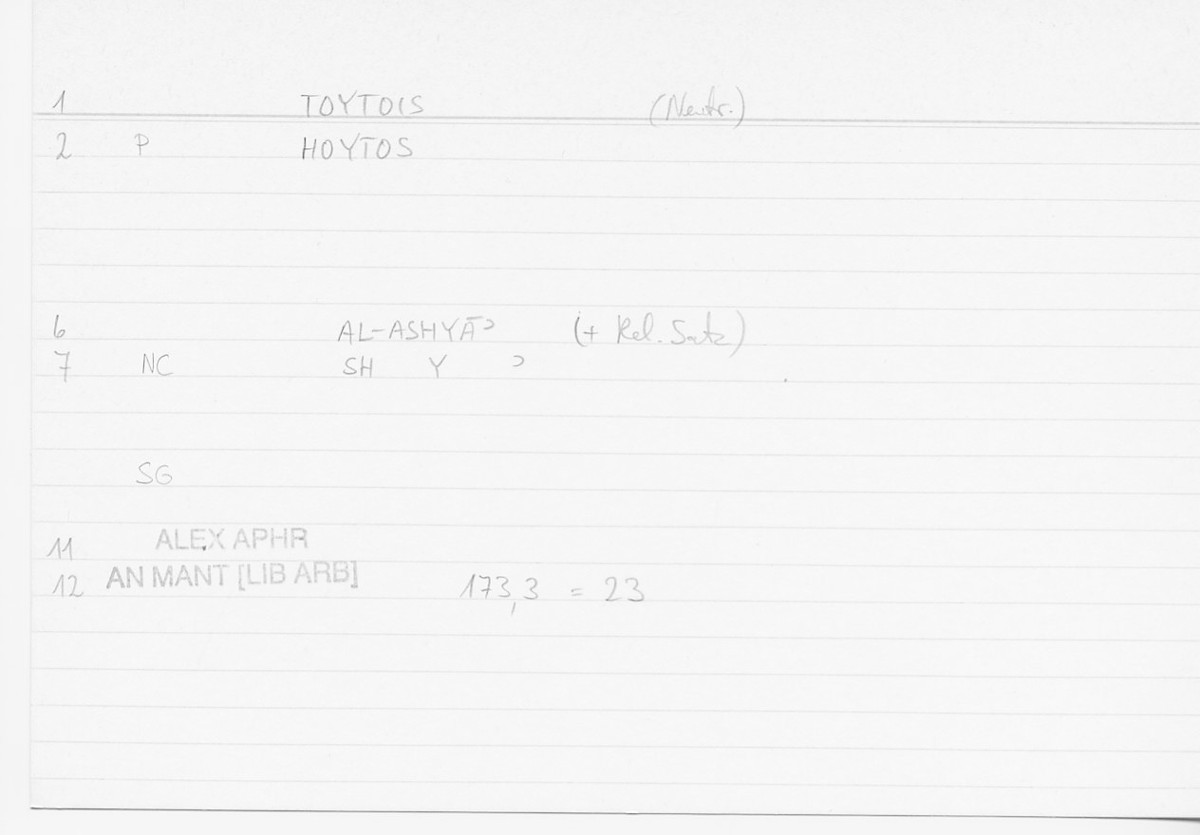 1 TOYTOIS (Neutr.)
2 P HOYTOS
6 AL-ASHYĀʾ (+ Rel. Satz)
7 NC SH Y ʾ
SG
11 ALEX APHR
12 AN MANT [LIB ARB] 173,3 = 23